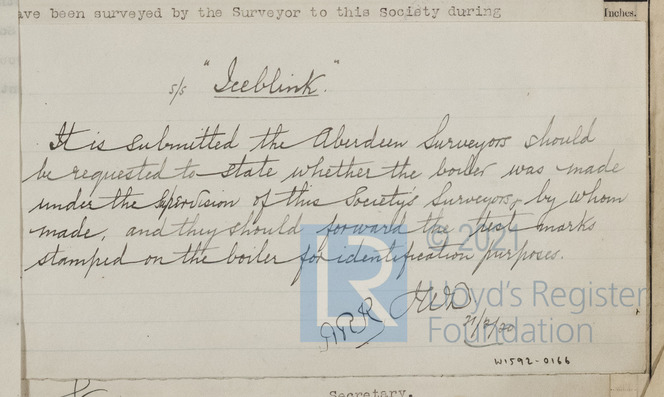 ave been surveyed by the Surveyor to this Society during
Inches.
s/s "Iceblink."
It is submitted the Aberdeen Surveyors should
be requested to state whether the boiler was made
under the supervision of this Society's Surveyors, by whom
made, and they should forward the test marks
stamped on the boiler for identification purposes.
© 2021
LR
Lloyd's Register
Foundation
W1592-0166
Secretary.